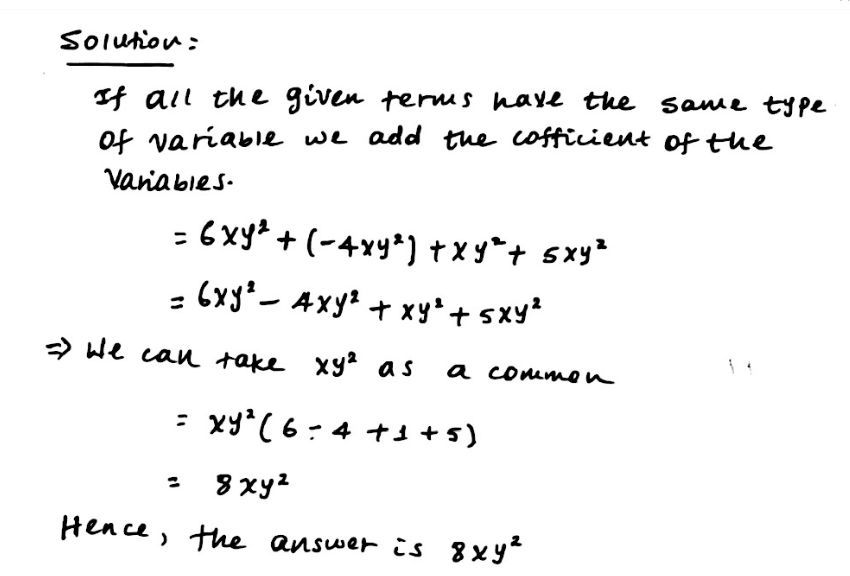 Solution:
If all the given terms have the same type
of variable we add the cofficient of the
variables.
= 6xy² + (-4xy²) + xy² + 5xy²
= 6xy² - 4xy² + xy² + 5xy²
⇒ We can take xy² as a common
= xy² (6 - 4 + 1 + 5)
= 8xy²
Hence, the answer is 8xy²